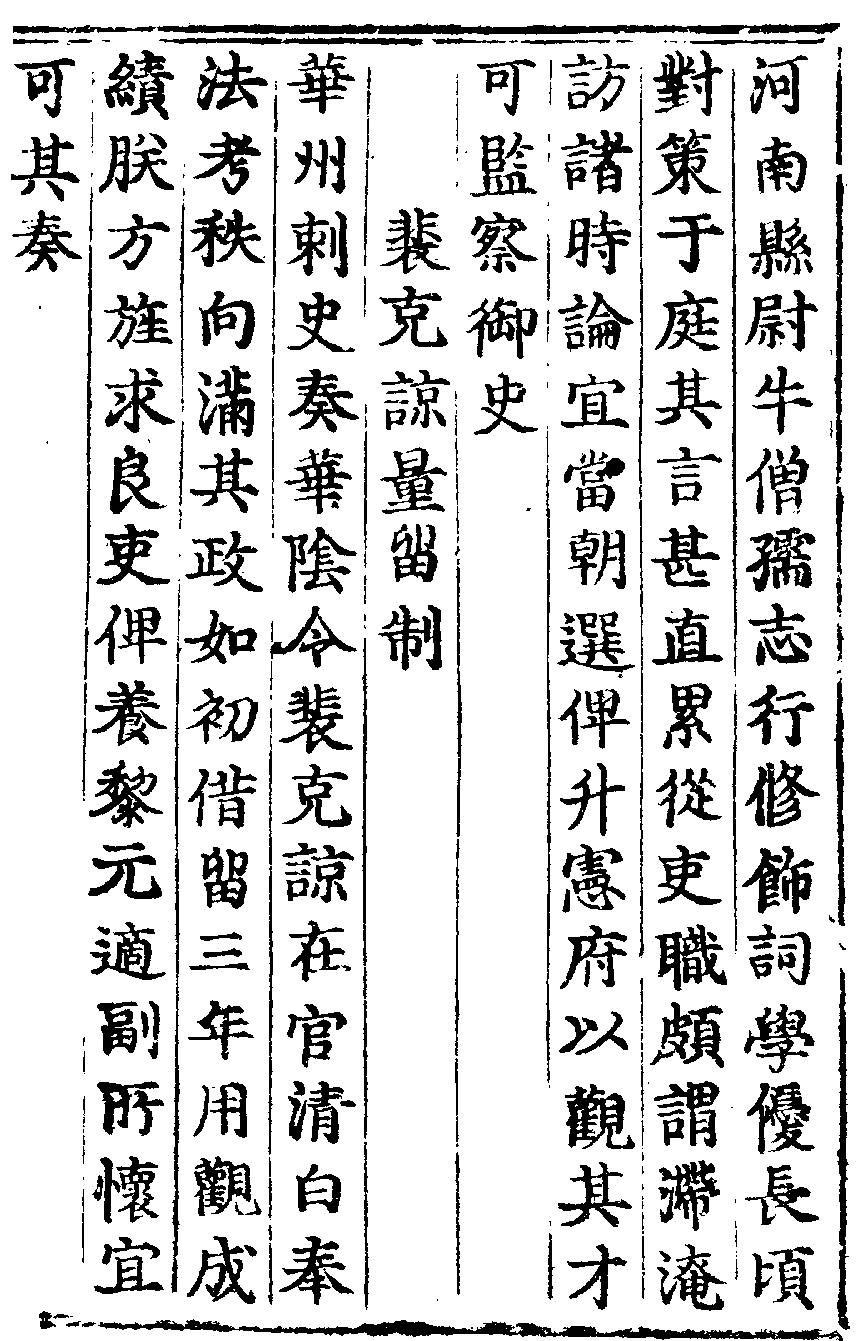 河南縣尉牛僧孺志行修飾詞學優長頃
對策于庭其言甚直累從吏職頗謂滯淹
訪諸時論宜當朝選俾升憲府以觀其才
可監察御史
裴克諒量留制
華州刺史奏華陰令裴克諒在官清白奉
法考秩向滿其政如初偕留三年用觀成
績朕方旌求良吏俾養黎元適副所懷宜
可其奏